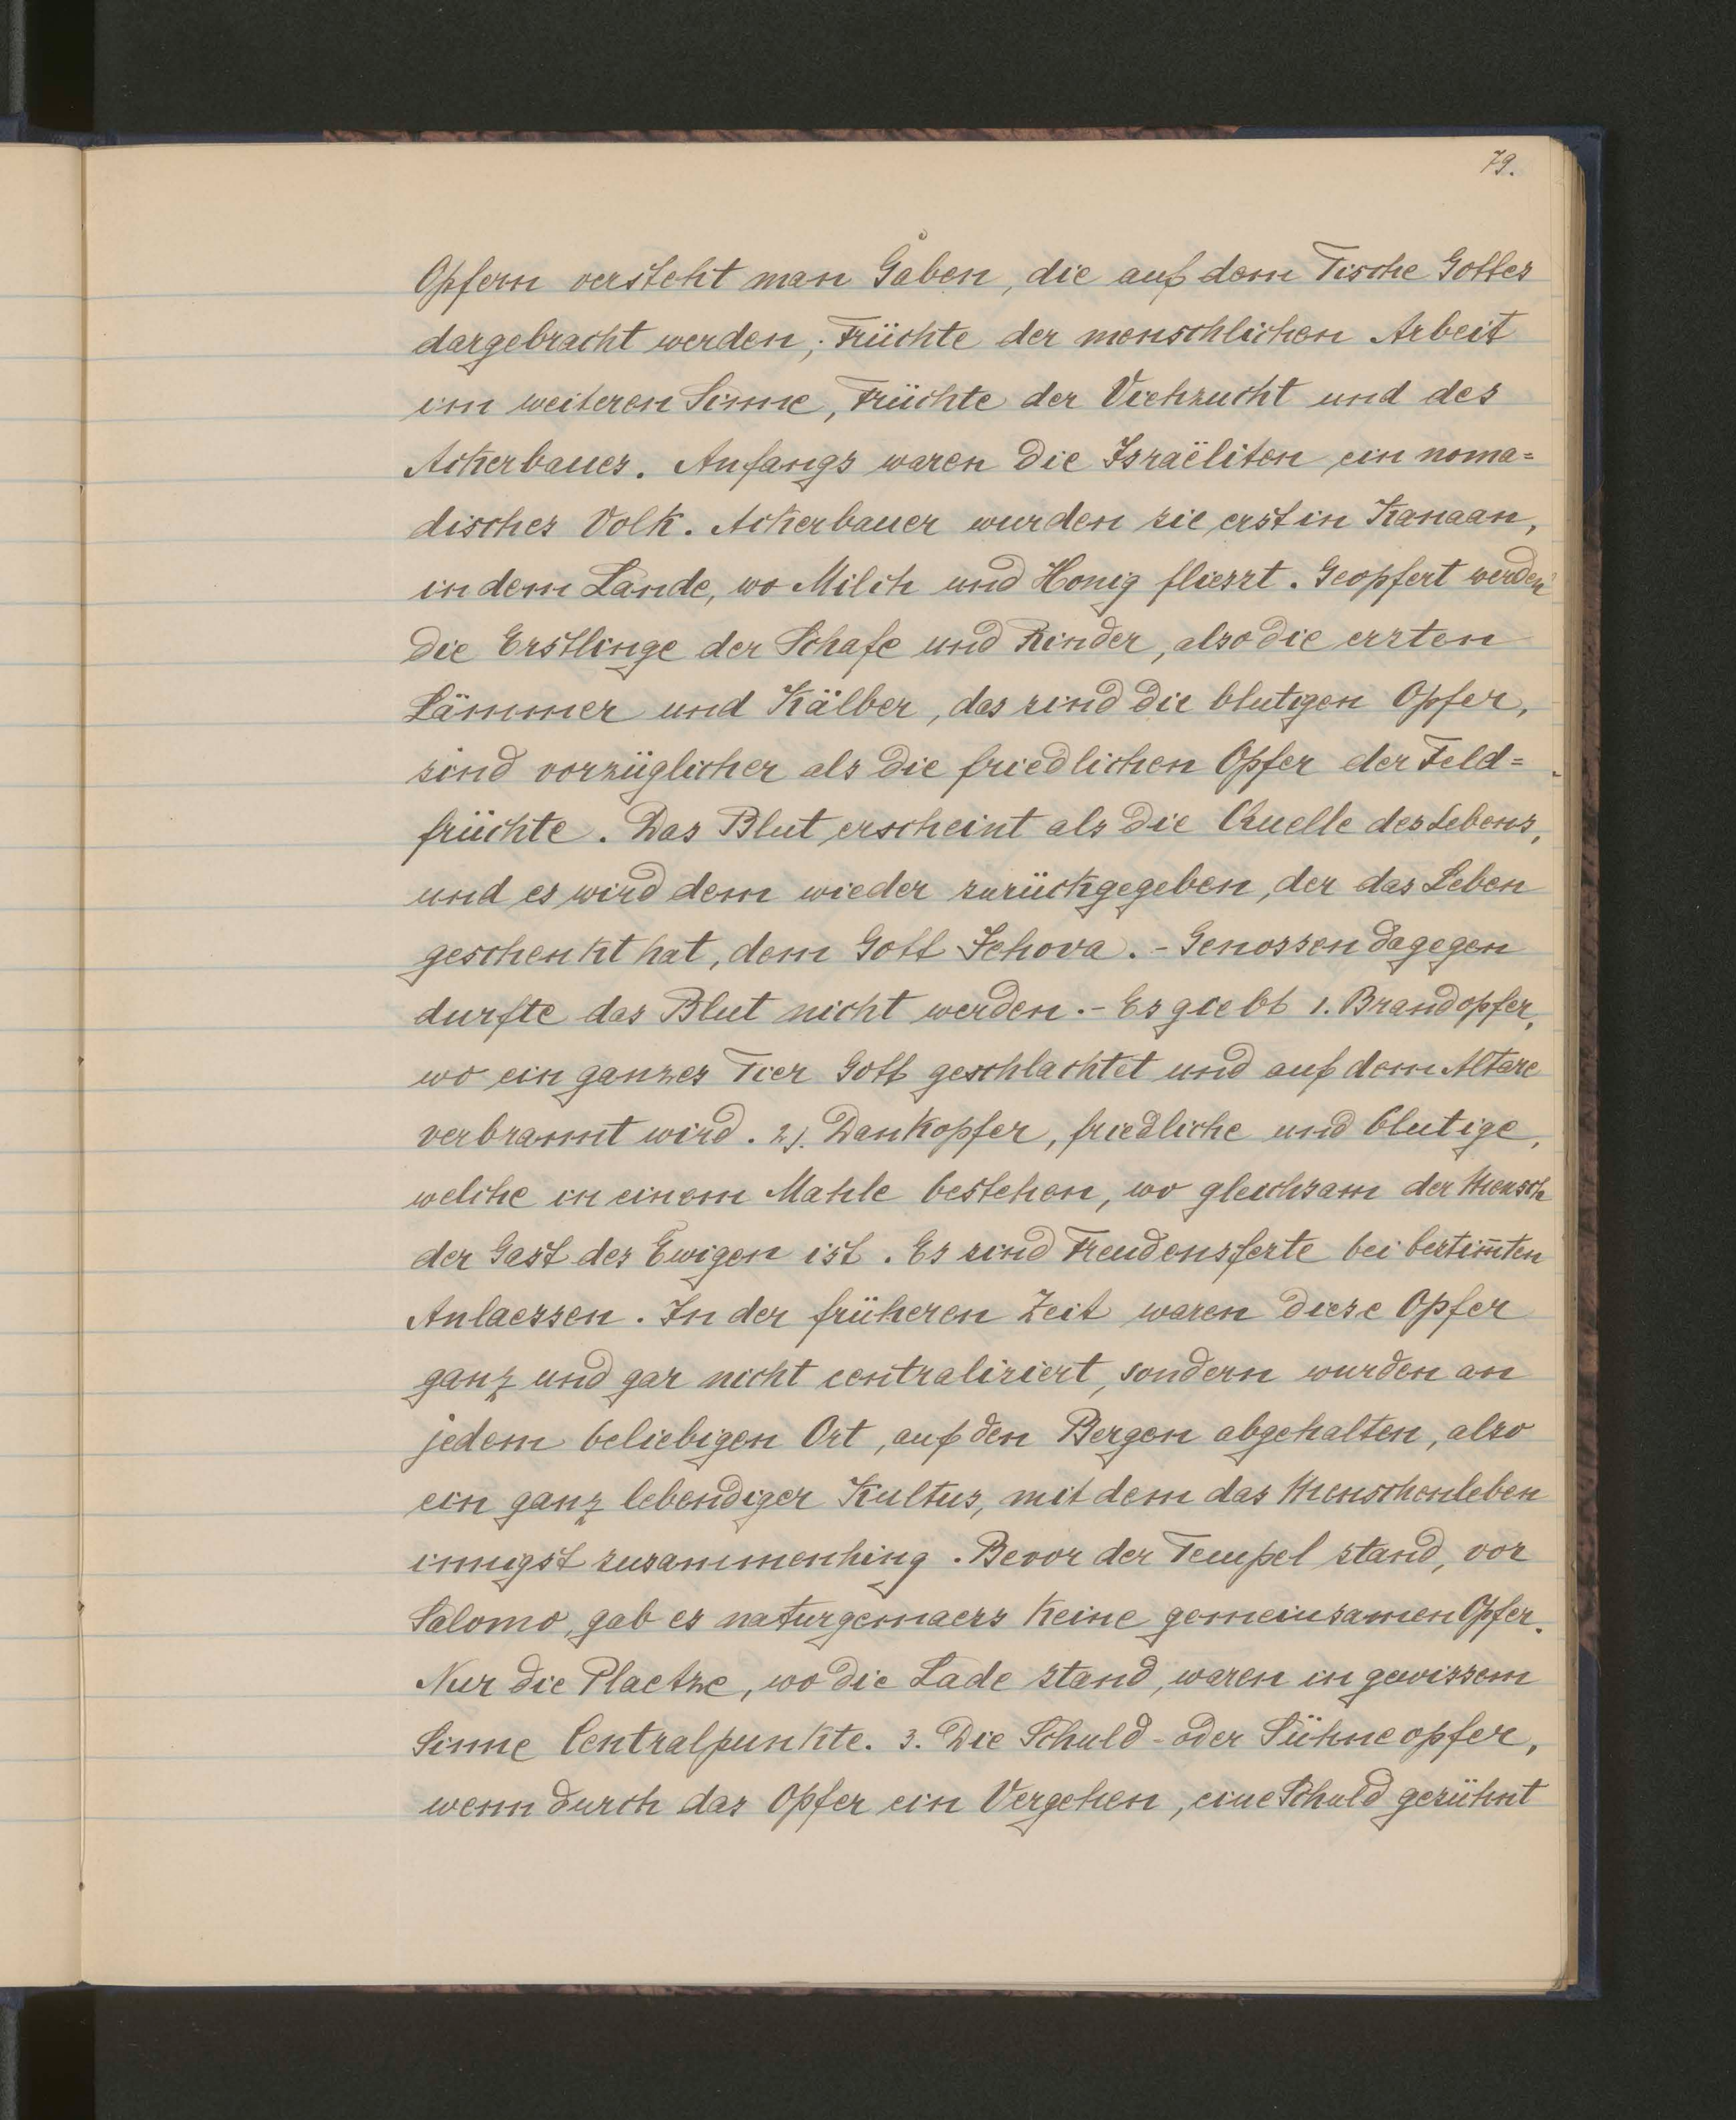 79.
Opfern versteht man Gaben, die auf dem Tische Gottes
dargebracht werden; Früchte der menschlichen Arbeit
im weiteren Sinne, Früchte der Viehzucht und des
Ackerbaues. Anfangs waren die Israëliten ein noma=
disches Volk. Ackerbauer wurden sie erst in Kanaan,
in dem Lande, wo Milch und Honig fliesst. Geopfert werden
die Erstlinge der Schafe und Rinder, also die ersten
Lämmer und Kälber, das sind die blutigen Opfer,
sind vorzüglicher als die friedlichen Opfer der Feld=
früchte. Das Blut erscheint als die Quelle des Lebens,
und es wird dem wieder zurückgegeben, der das Leben
geschenkt hat, dem Gott Jehova. - Genossen dagegen
durfte das Blut nicht werden. - Es giebt 1. Brandopfer,
wo ein ganzes Tier Gott geschlachtet und auf dem Altare
verbrannt wird. 2). Dankopfer, friedliche und blutige,
welche in einem Mahle bestehen, wo gleichsam der Mensch
der Gast des Ewigen ist. Es sind Freudensfeste bei bestim̅ten
Anlaessen. In der früheren Zeit waren diese Opfer
ganz und gar nicht centralisiert, sondern wurden an
jedem beliebigen Ort, auf den Bergen abgehalten, also
ein ganz lebendiger Kultus, mit dem das Menschenleben
innigst zusammenhing. Bevor der Tempel stand, vor
Salomo, gab es naturgemaess keine gemeinsamen Opfer.
Nur die Plaetze, wo die Lade stand, waren in gewissem
Sinne Centralpunkte. 3. Die Schuld- oder Sühneopfer,
wenn durch das Opfer ein Vergehen, eine Schuld gesühnt